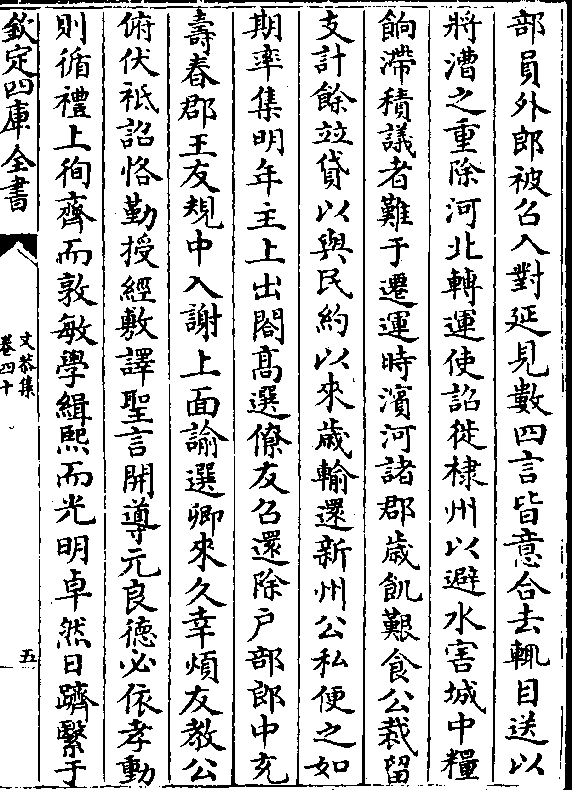 部員外郎被召入對延見數四言皆意合去輒目送以
將漕之重除河北轉運使詔徙棣州以避水害城中糧
餉滯積議者難于遷運時濱河諸郡歲飢艱食公裁留
支計餘竝貸以與民約以來歲輸還新州公私便之如
期率集明年主上出閤髙選僚友召還除户部郎中充
壽春郡王友規中入謝上面諭選卿來久幸煩友教公
俯伏祗詔恪勤授經敷譯聖言開導元良德必依孝動
則循禮上徇齊而敦敏學緝熙而光明卓然日躋繫于
欽定四庫全書
文恭集
卷四十
五